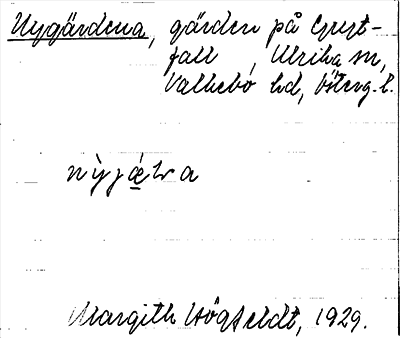 Nygärdena, gärden på Gryt-
fall , Ulrika sn,
Valkebo hd, Österg. l.
Margith Högfeldt, 1929.